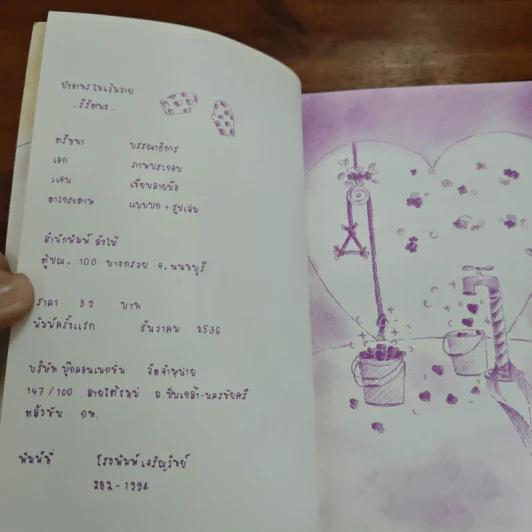 ปะการังไม่เจ้นวาย
..รัรัตนะ..
ตรีชนา บรรณาธิการ
เอก ภาพประกอบ
แพน เขียนลายมือ
ดาวกระดาษ แบบปก + รูปเล่ม
สำนักพิมพ์ ต้งไม้
ตู้ปณ. 100 บางกรวย จ. นนทบุรี
ราคา 39 บาท
พิมพ์ครั้งแรก ธันวาคม 2536
บริษัท บุ๊กคอนเนกชั่น จัดจำหน่าย
147/100 สายใต้ใหม่ ถ. ปิ่นเกล้า-นครชัยศรี
ตลิ่งชัน กท.
พิมพ์ที่ โรงพิมพ์เจริญวิทย์
282-1994